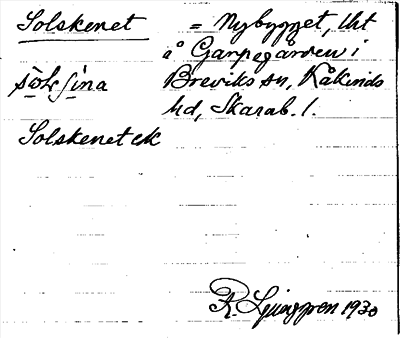 Solskenet = Nybygget, lht
å Garpegården i
sōlsina Breviks sn, Kåkinds
hd, Skarab. l.
Solskenet ek
R. Ljunggren 1930